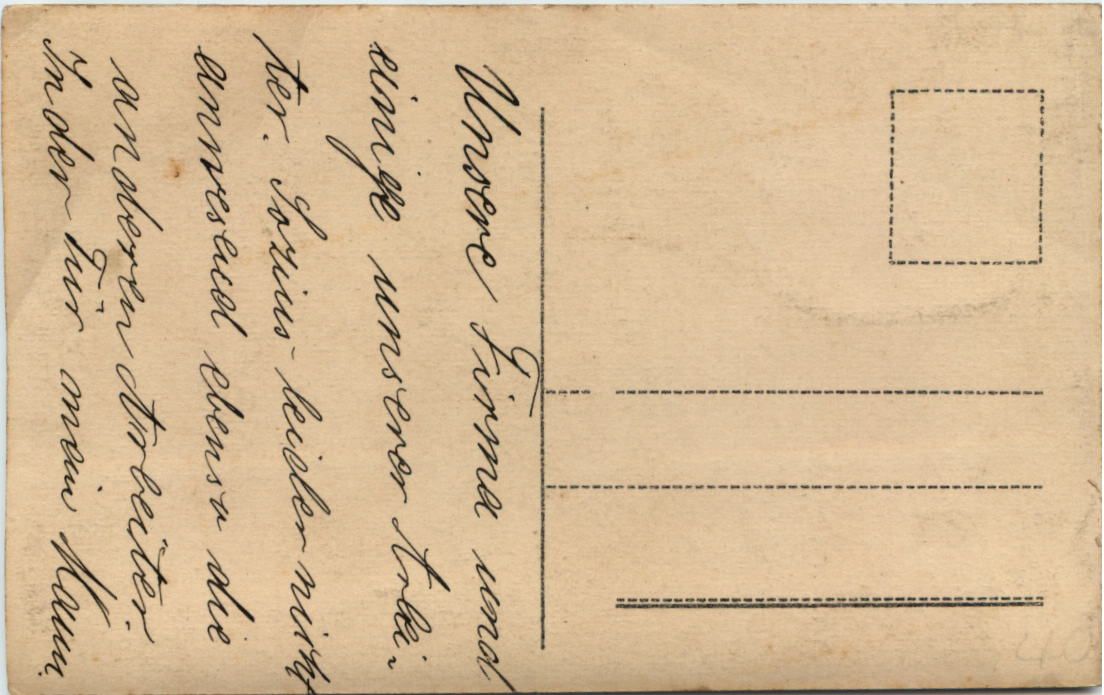 Unsere Firma und
einige unserer Arbei-
ter. Sozius leider nicht
anwesend ebenso die
anderen Arbeiter.
In der Tür mein Mann.
40